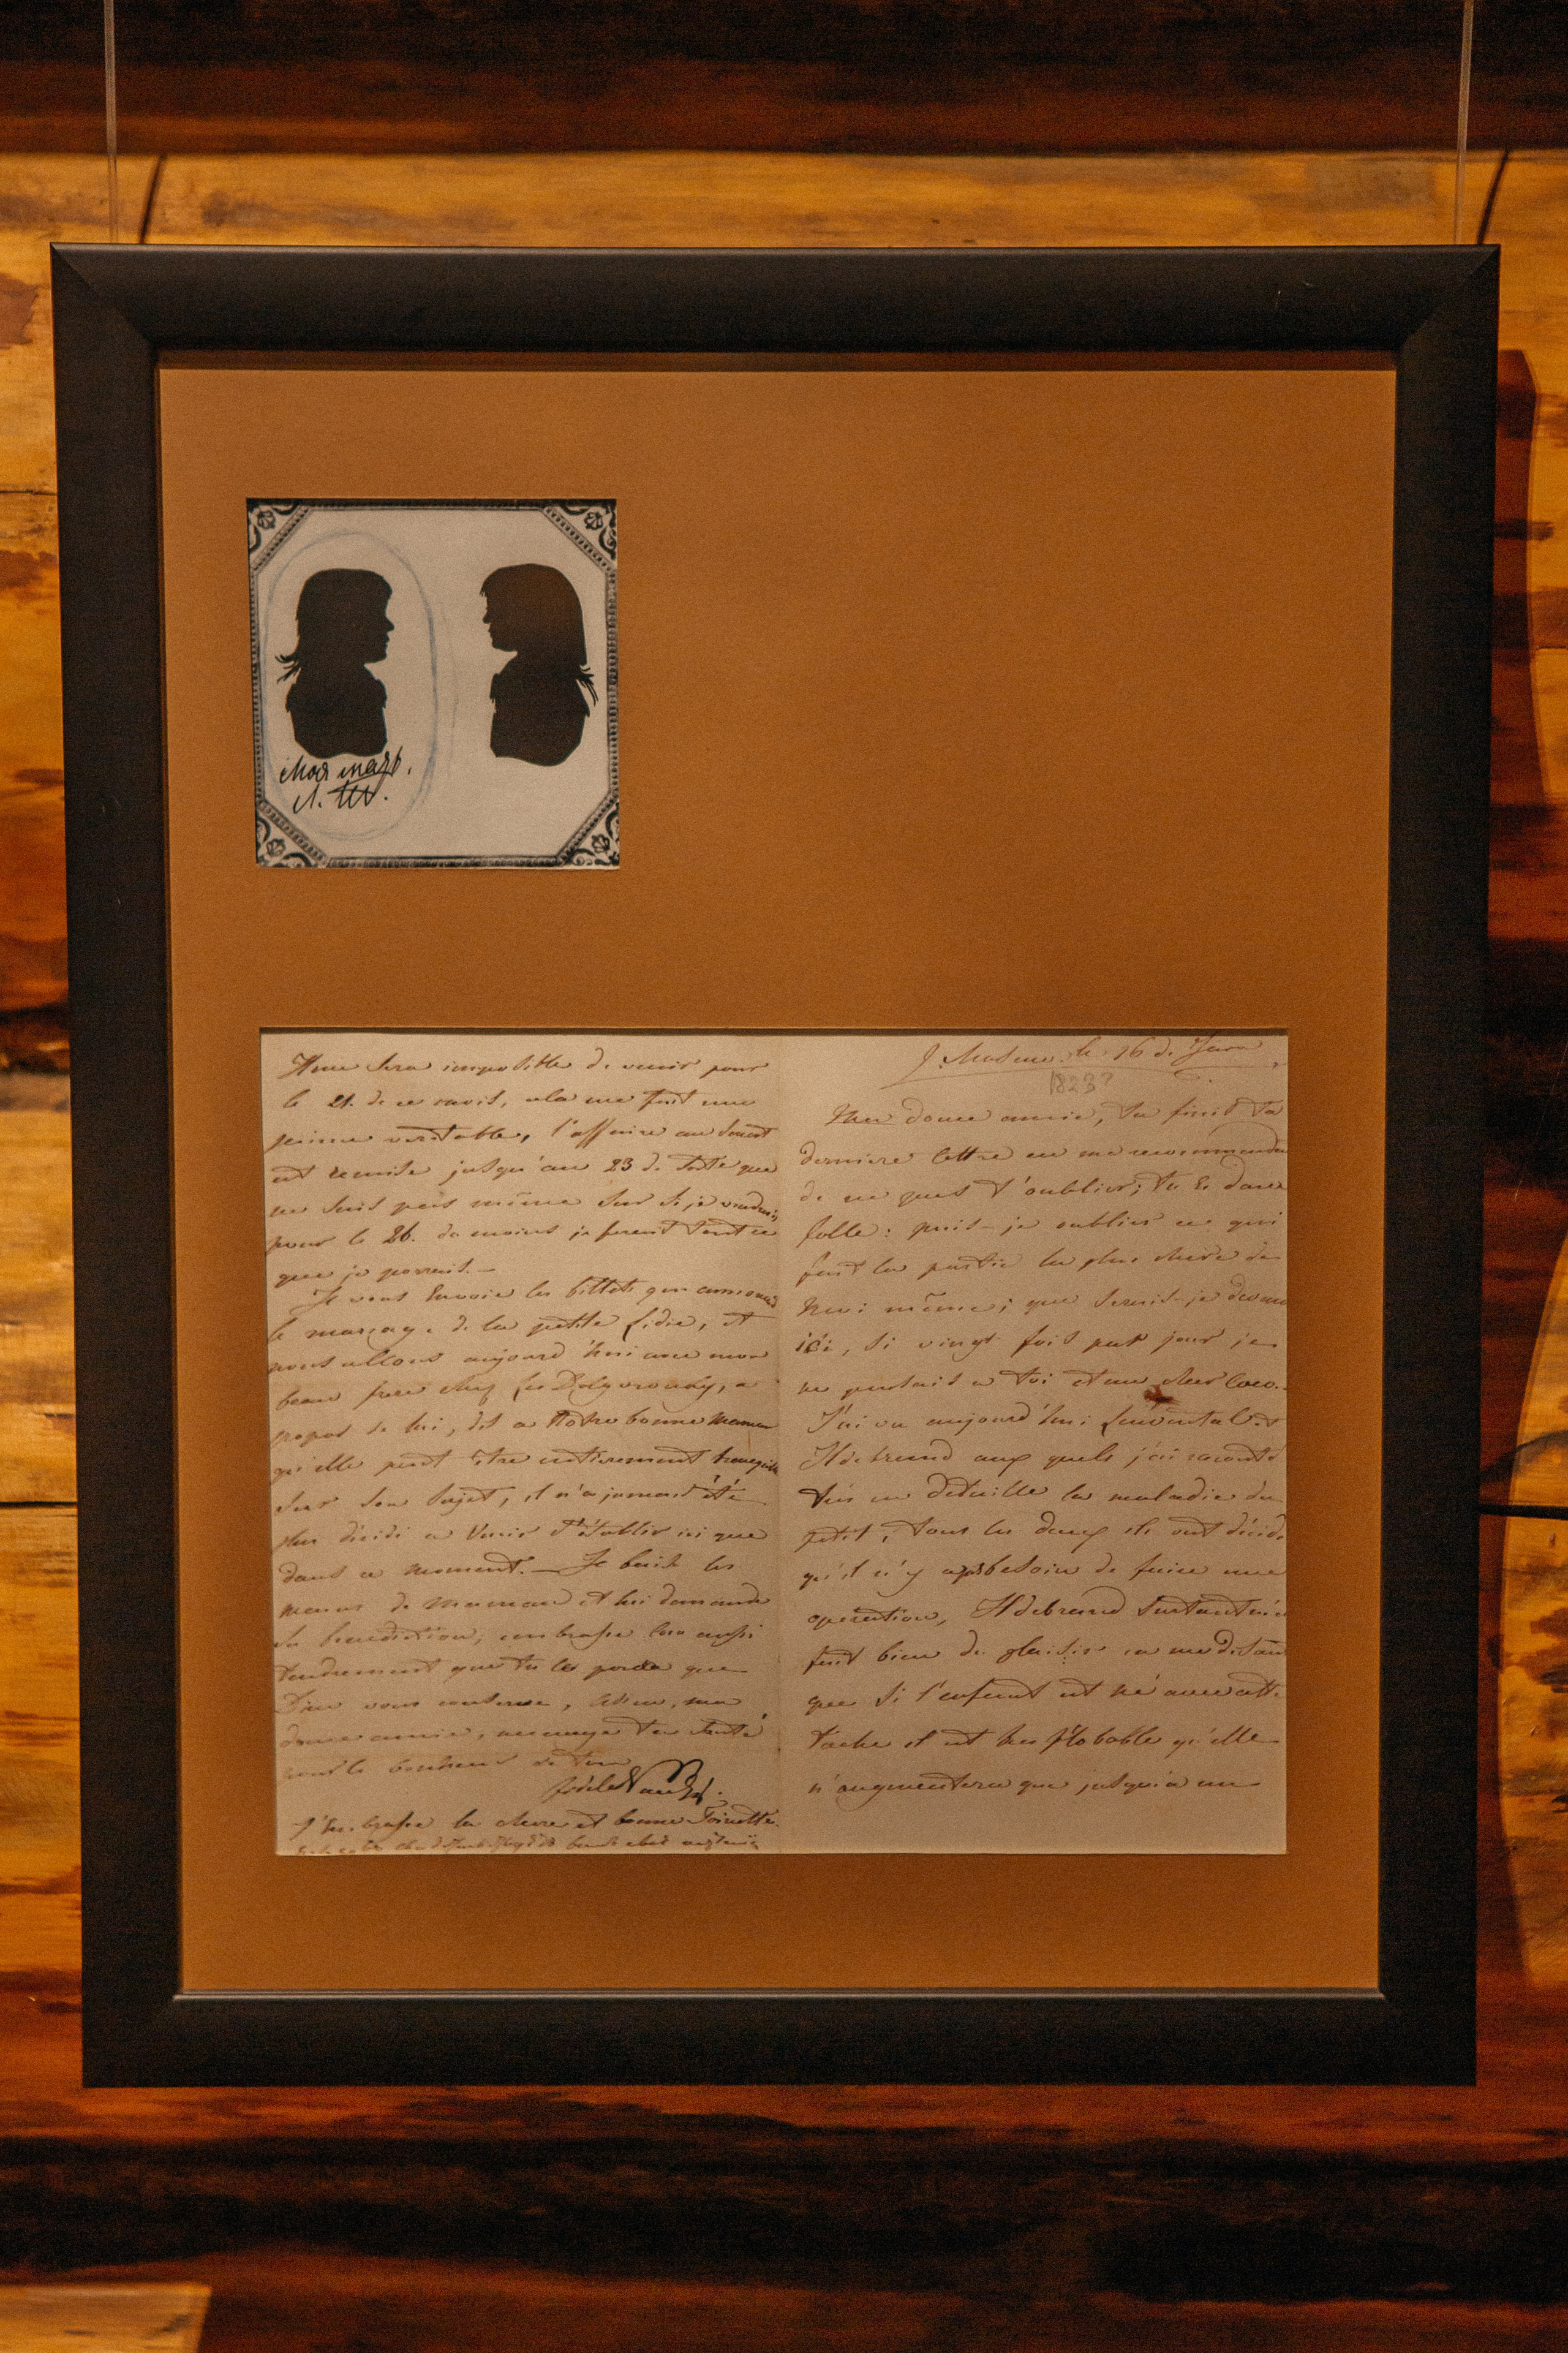 Моя мать.
Л. Т.
Il me sera impossible de venir pour
le 21. de ce mois, cela me fait une
peine veritable, l'affaire au Senat
est remise jusqu'au 23 de sorte que
ne suis pas même sur si je viendrais
pour le 26. du moins je ferait tout ce
que je pourrait.—
Je vous envoie les billets qui annoncent
le mariage de la petite Lidie, et
nous allons aujourd'hui avec mon
beau frere chez les Dolgorouky, a
propos de lui, dit a notre bonne Maman
qu'elle peut être entierement tranquille
sur son sujet, il n'a jamais été
plus décidé a venir s'établir ici que
dans ce moment.— Je baise les
mains de Maman et lui demande
sa benediction; embrasse Coco aussi
tendrement que tu le
Dieu vous conserve, Adieu, ma
douce amie, menage ta santé
pour le bonheur de ton
fidele
J'embrasse la chere et bonne Toinette.
le 16 de Juin
1823?
Ma douce amie, tu finit ta
derniere lettre en me recommendant
de ne pas t'oublier; tu es donc
folle: puis-je oublier ce qui
fait la partie la plus chere de
moi même; que serais-je donc
ici, si vingt fois par jour je
ne pensais a toi et au cher Coco.
J'ai vu aujourd'hui et
Hdebrand aux quels j'ai raconté
tres en detaille la maladie du
petit; tous les deux ils ont décidé
qu'il n'y a pas besoin de faire une
operation, Hdebrand surtout m'a
fait bien du plaisir en me disant
que si l'enfant est né avec cette
tache il est tres probable qu'elle
n'augmentera que jusqu'a un